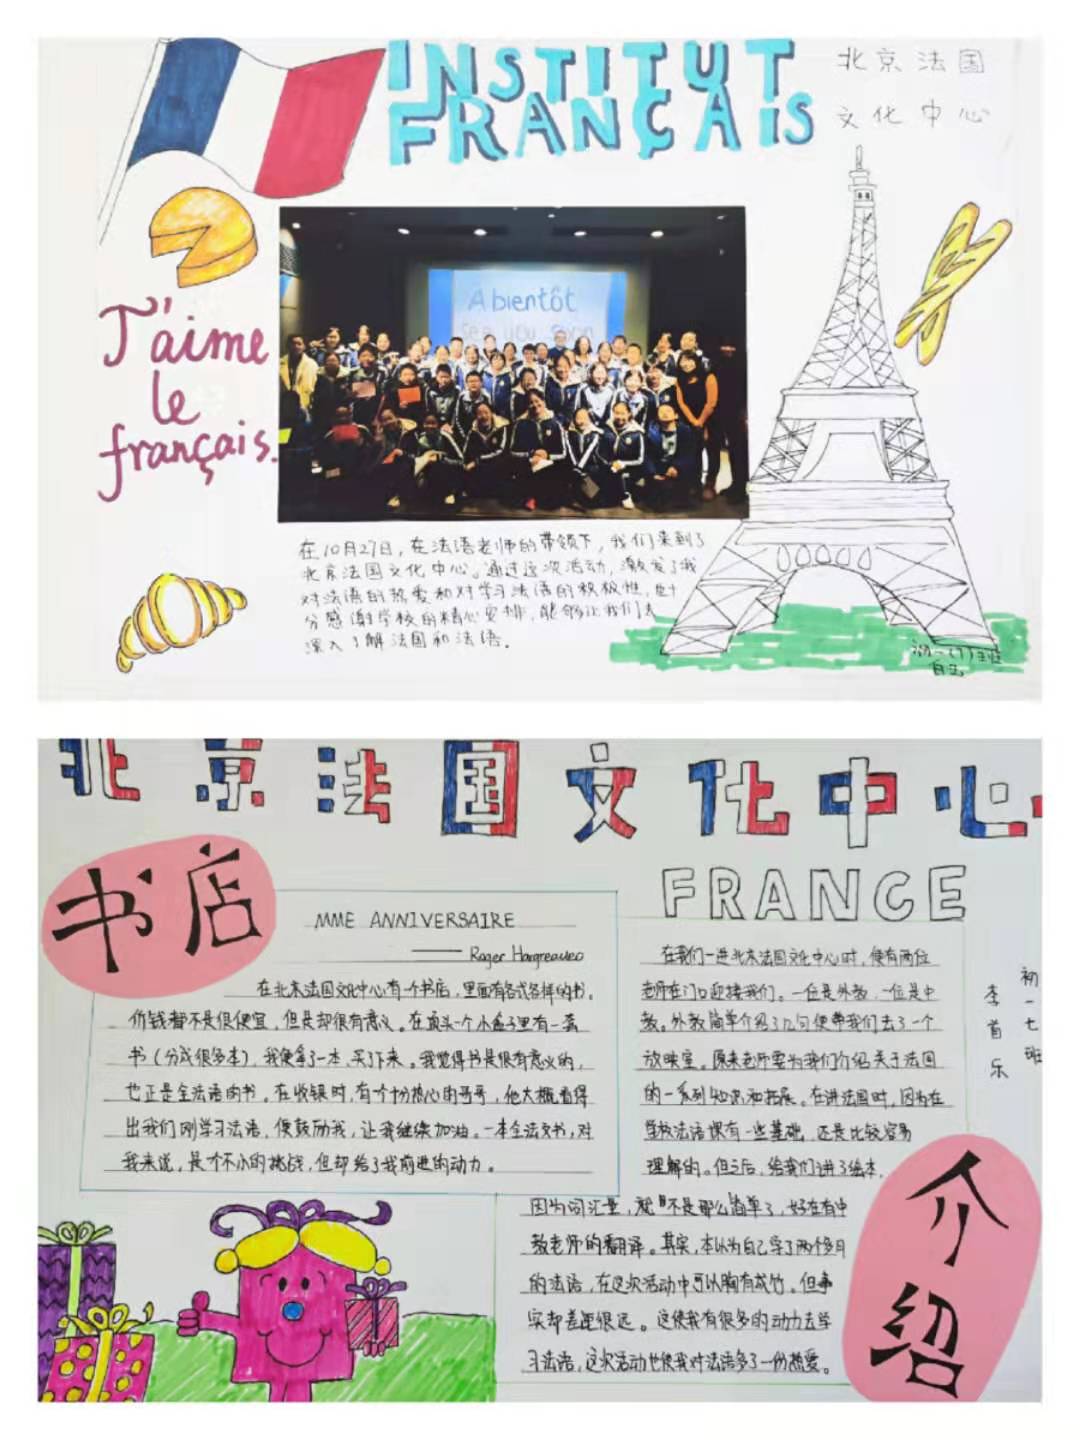 INSTITUT
FRANÇAIS
北京法国
文化中心
J'aime
le
français.
À bientôt
See you soon
在10月27日，在法语老师的带领下，我们来到了
北京法国文化中心。通过这次活动，激发了我
对法语的热爱和对学习法语的积极性，也十
分感谢学校的精心安排，能够让我们去
深入了解法国和法语。
北京法国文化中心
书店
MME ANNIVERSAIRE
—— Roger Hargreaves
在北京法国文化中心有个书店，里面有各式各样的书。
价钱都不是很便宜，但是却很有意义。在最头一个小盒子里有一套
书（分成很多本），我便拿了一本，买了下来。我觉得书是很有意义的，
也正是全法语的书。在收银时，有个十分热心的哥哥，他大概看得
出我们刚学习法语，便鼓励我，让我继续加油。一本全法文书，对
我来说，是个不小的挑战，但却给了我前进的动力。
FRANCE
在我们一进北京法国文化中心时，便有两位
老师在门口迎接我们。一位是外教，一位是中
教。外教简单介绍了几句便带我们去了一个
放映室。原来老师要为我们介绍关于法国
的一系列知识和拓展。在讲法国时，因为在
学校法语课有一些基础，还是比较容易
理解的。但之后，给我们讲了绘本，
因为词汇量，就不是那么简单了，好在有中
教老师的翻译。其实，本以为自己学了两个多月
的法语，在这次活动中可以胸有成竹。但事
实却差距很远。这使我有很多的动力去学
习法语，这次活动也使我对法语多了一份热爱。
初一七班
李首乐
介绍